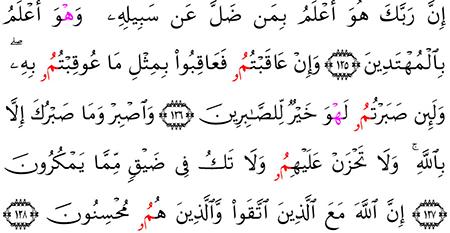 إِنَّ رَبَّكَ هُوَ أَعْلَمُ بِمَن ضَلَّ عَن سَبِيلِهِۦ وَهْوَ أَعْلَمُ
بِٱلْمُهْتَدِينَ ١٢٥ وَإِنْ عَاقَبْتُمُۥ فَعَاقِبُوا۟ بِمِثْلِ مَا عُوقِبْتُمُۥ بِهِۦۖ
وَلَئِن صَبَرْتُمُۥ لَهْوَ خَيْرٌ لِّلصَّٰبِرِينَ ١٢٦ وَٱصْبِرْ وَمَا صَبْرُكَ إِلَّا
بِٱللَّهِۚ وَلَا تَحْزَنْ عَلَيْهِمُۥ وَلَا تَكُ فِى ضَيْقٍ مِّمَّا يَمْكُرُونَ
١٢٧ إِنَّ ٱللَّهَ مَعَ ٱلَّذِينَ ٱتَّقَوا۟ وَٱلَّذِينَ هُمُۥ مُحْسِنُونَ ١٢٨